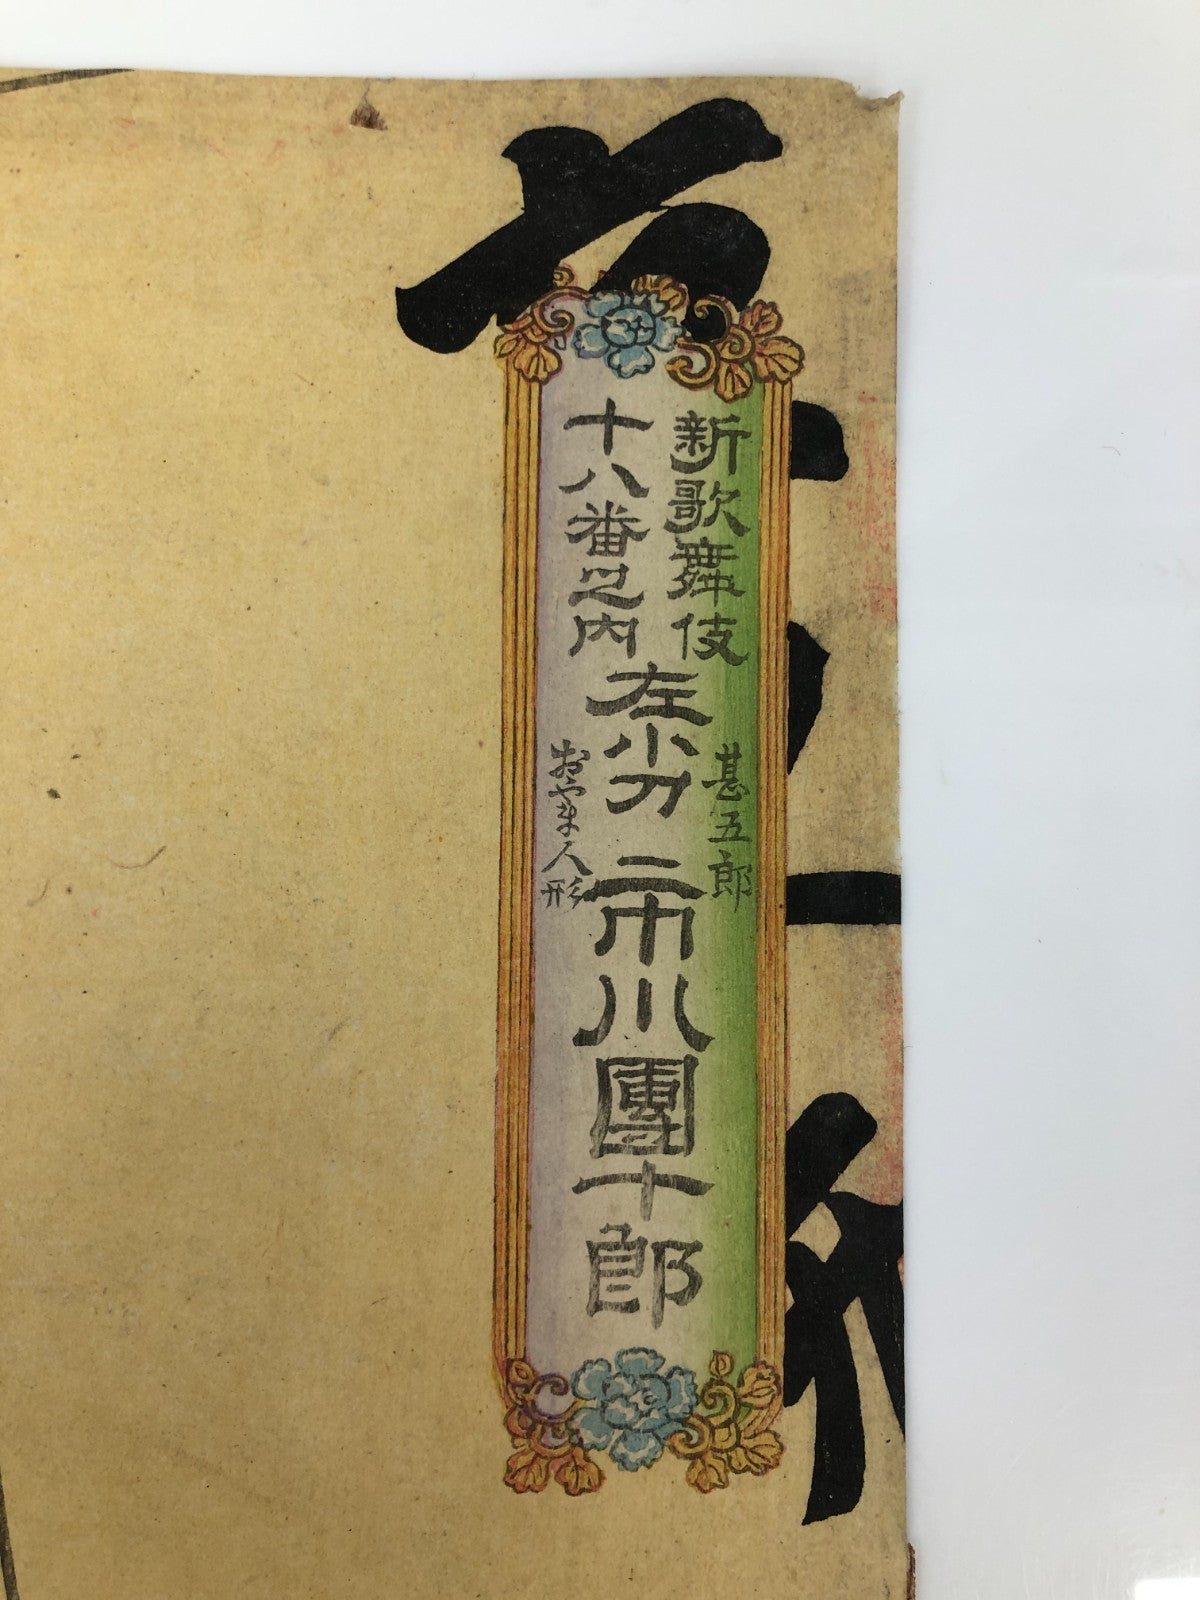 新歌舞伎
十八番之内
左小刀
甚五郎
おやま人形
二市川團十郎